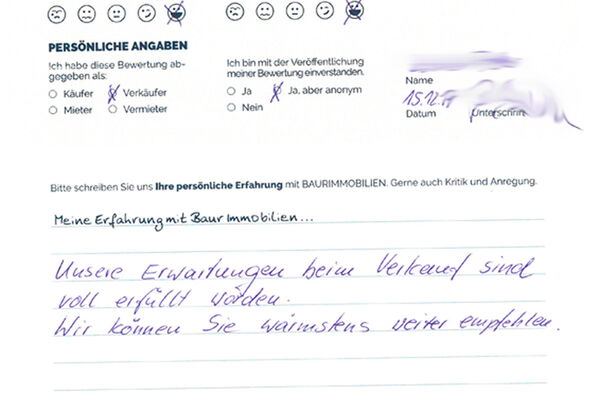 PERSÖNLICHE ANGABEN
Ich habe diese Bewertung ab-
gegeben als:
Käufer Verkäufer
Mieter Vermieter
Ich bin mit der Veröffentlichung
meiner Bewertung einverstanden.
Ja Ja, aber anonym
Nein
Name
15.12.
Datum Unterschrift
Bitte schreiben Sie uns Ihre persönliche Erfahrung mit BAURIMMOBILIEN. Gerne auch Kritik und Anregung.
Meine Erfahrung mit Baur Immobilien...
Unsere Erwartungen beim Verkauf sind
voll erfüllt worden.
Wir können Sie wärmstens weiter empfehlen.